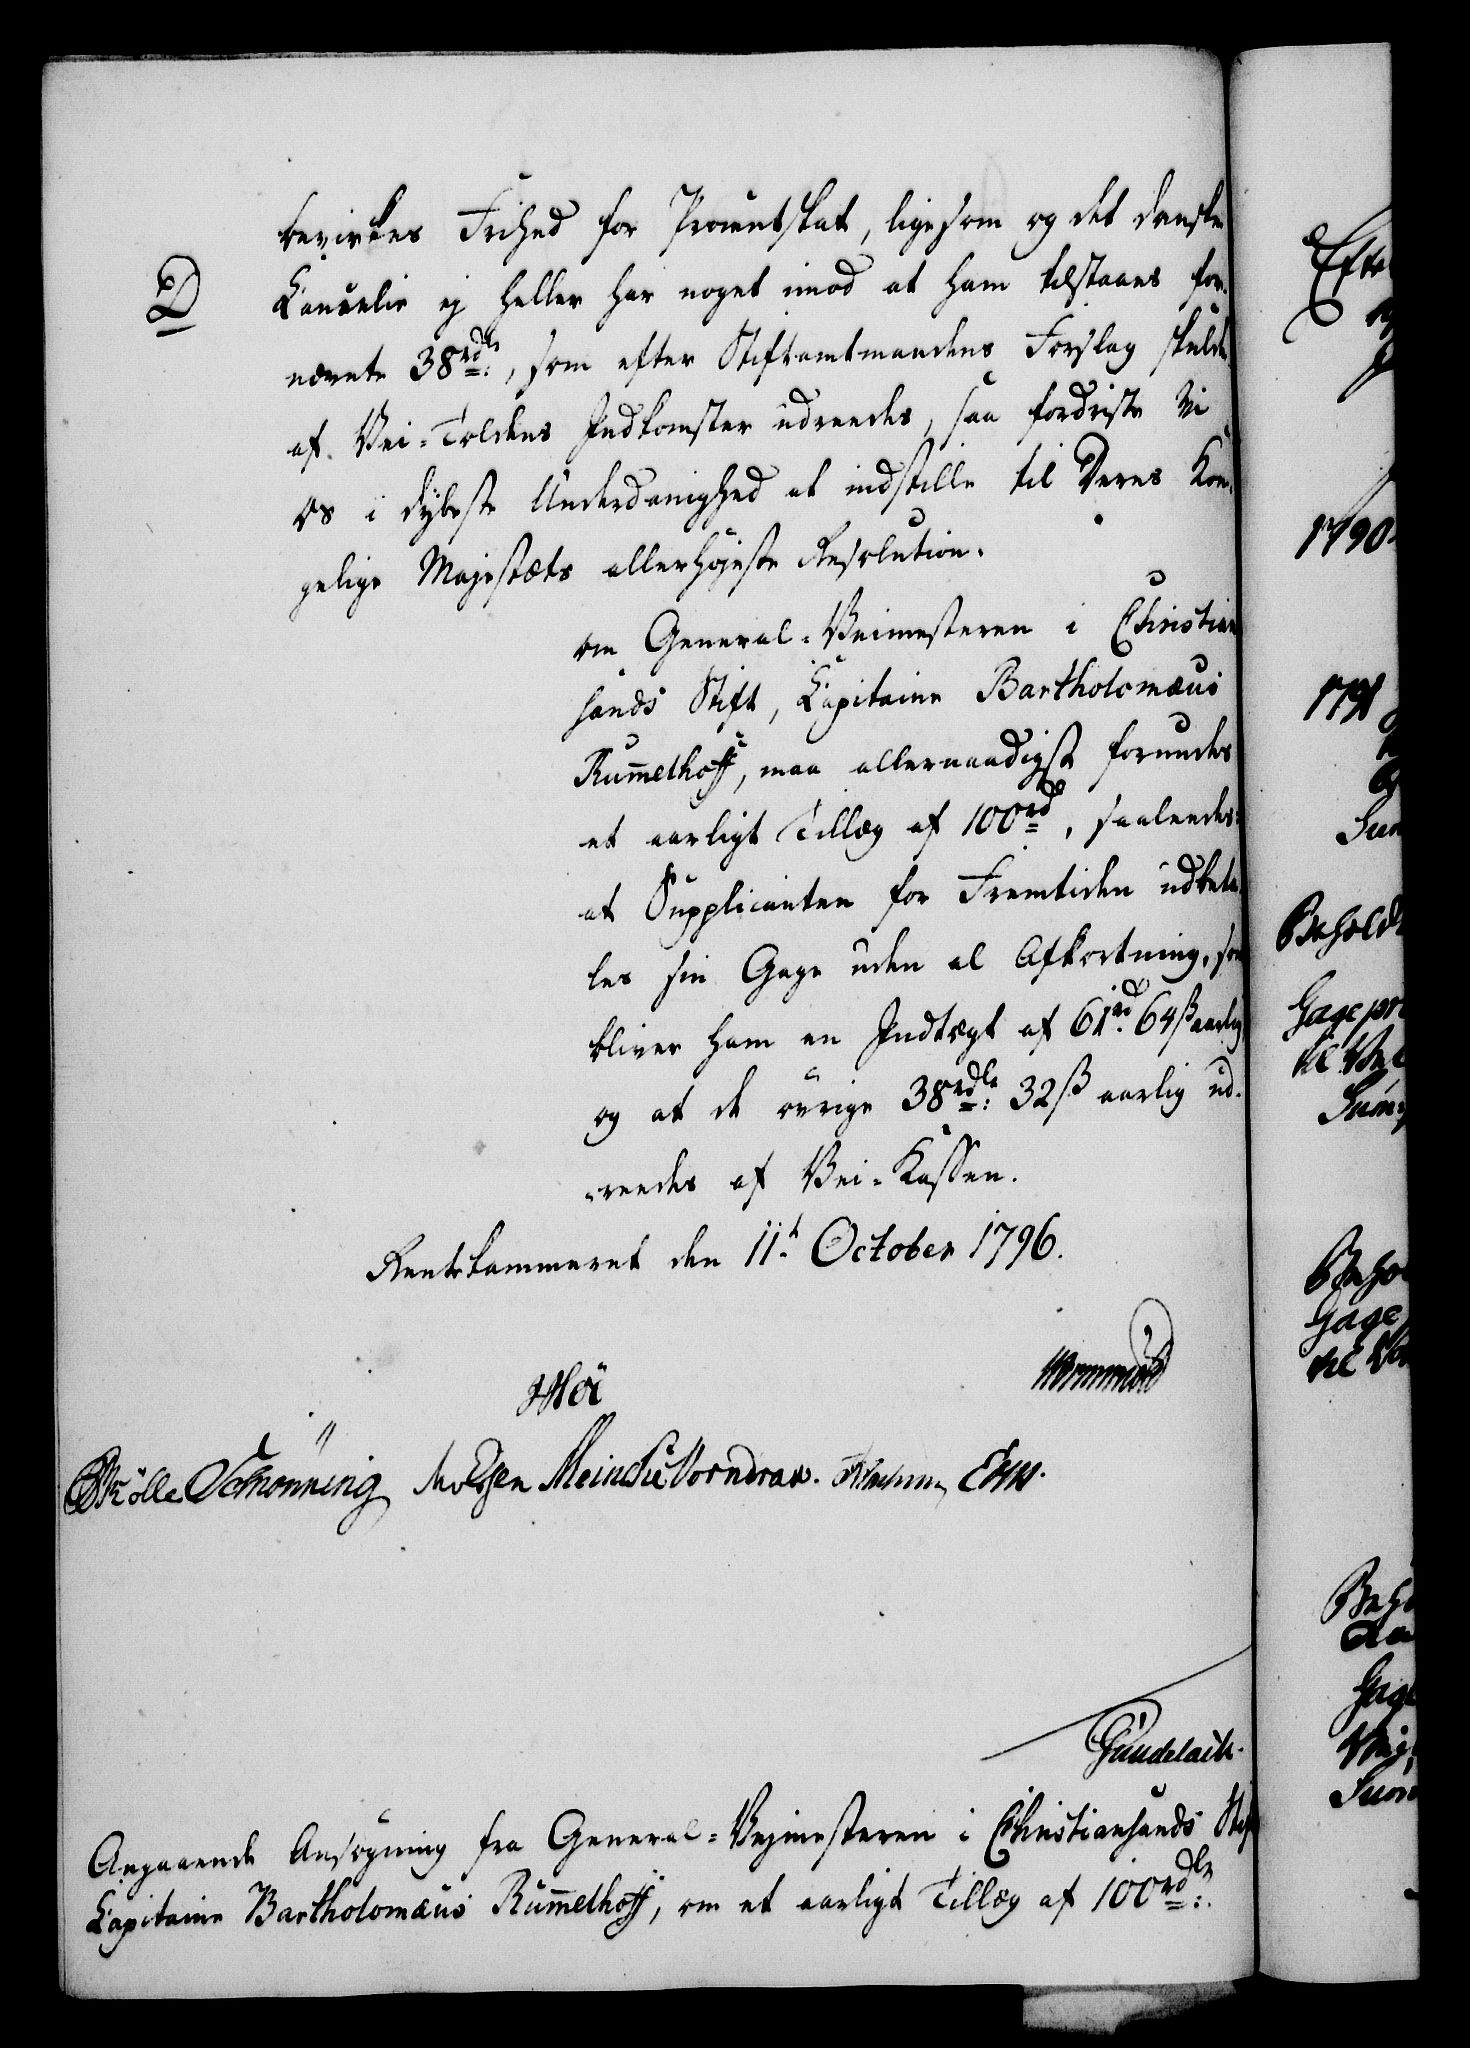 bevirkes Frihed for Procentskat, ligesom og det danske
D
Cancelie ej heller har noget imod at ham tilstaaes for-
nævnte 38 rdlr:, som efter Stiftamtmandens Forslag skulde
af Vei-Toldens Indkomster udreedes, saa fordriste Vi
os i dybeste Underdanighed at indstille til Deres Kon-
gelige Majestæts allerhøjeste Resolution.
om General-Veimesteren i Christian
sands Stift, Capitaine Bartholomæus
Rum̅elhoff, maa allernaadigst forundes
et aarligt Tillæg af 100 rd, saaledes:
at Supplicanten for Fremtiden udbeta-
les sin Gage uden al Afkortning, som
bliver ham en Indtægt af 61 rd. 64 ß aarlig
og at de øvrige 38 rdlr: 32 ß aarlig ud-
-reedes af Vei-Kassen.
Rentekammeret den 11t October 1796.
Schønning Meincke Vorndran.
Gundelach.
Angaaende Ansøgning fra General-Vejmesteren i Christiansands Stift
Capitaine Bartholomæus Rum̅elhoff, om et aarligt Tillæg af 100 rdlr:.
1790.
1791
Gage